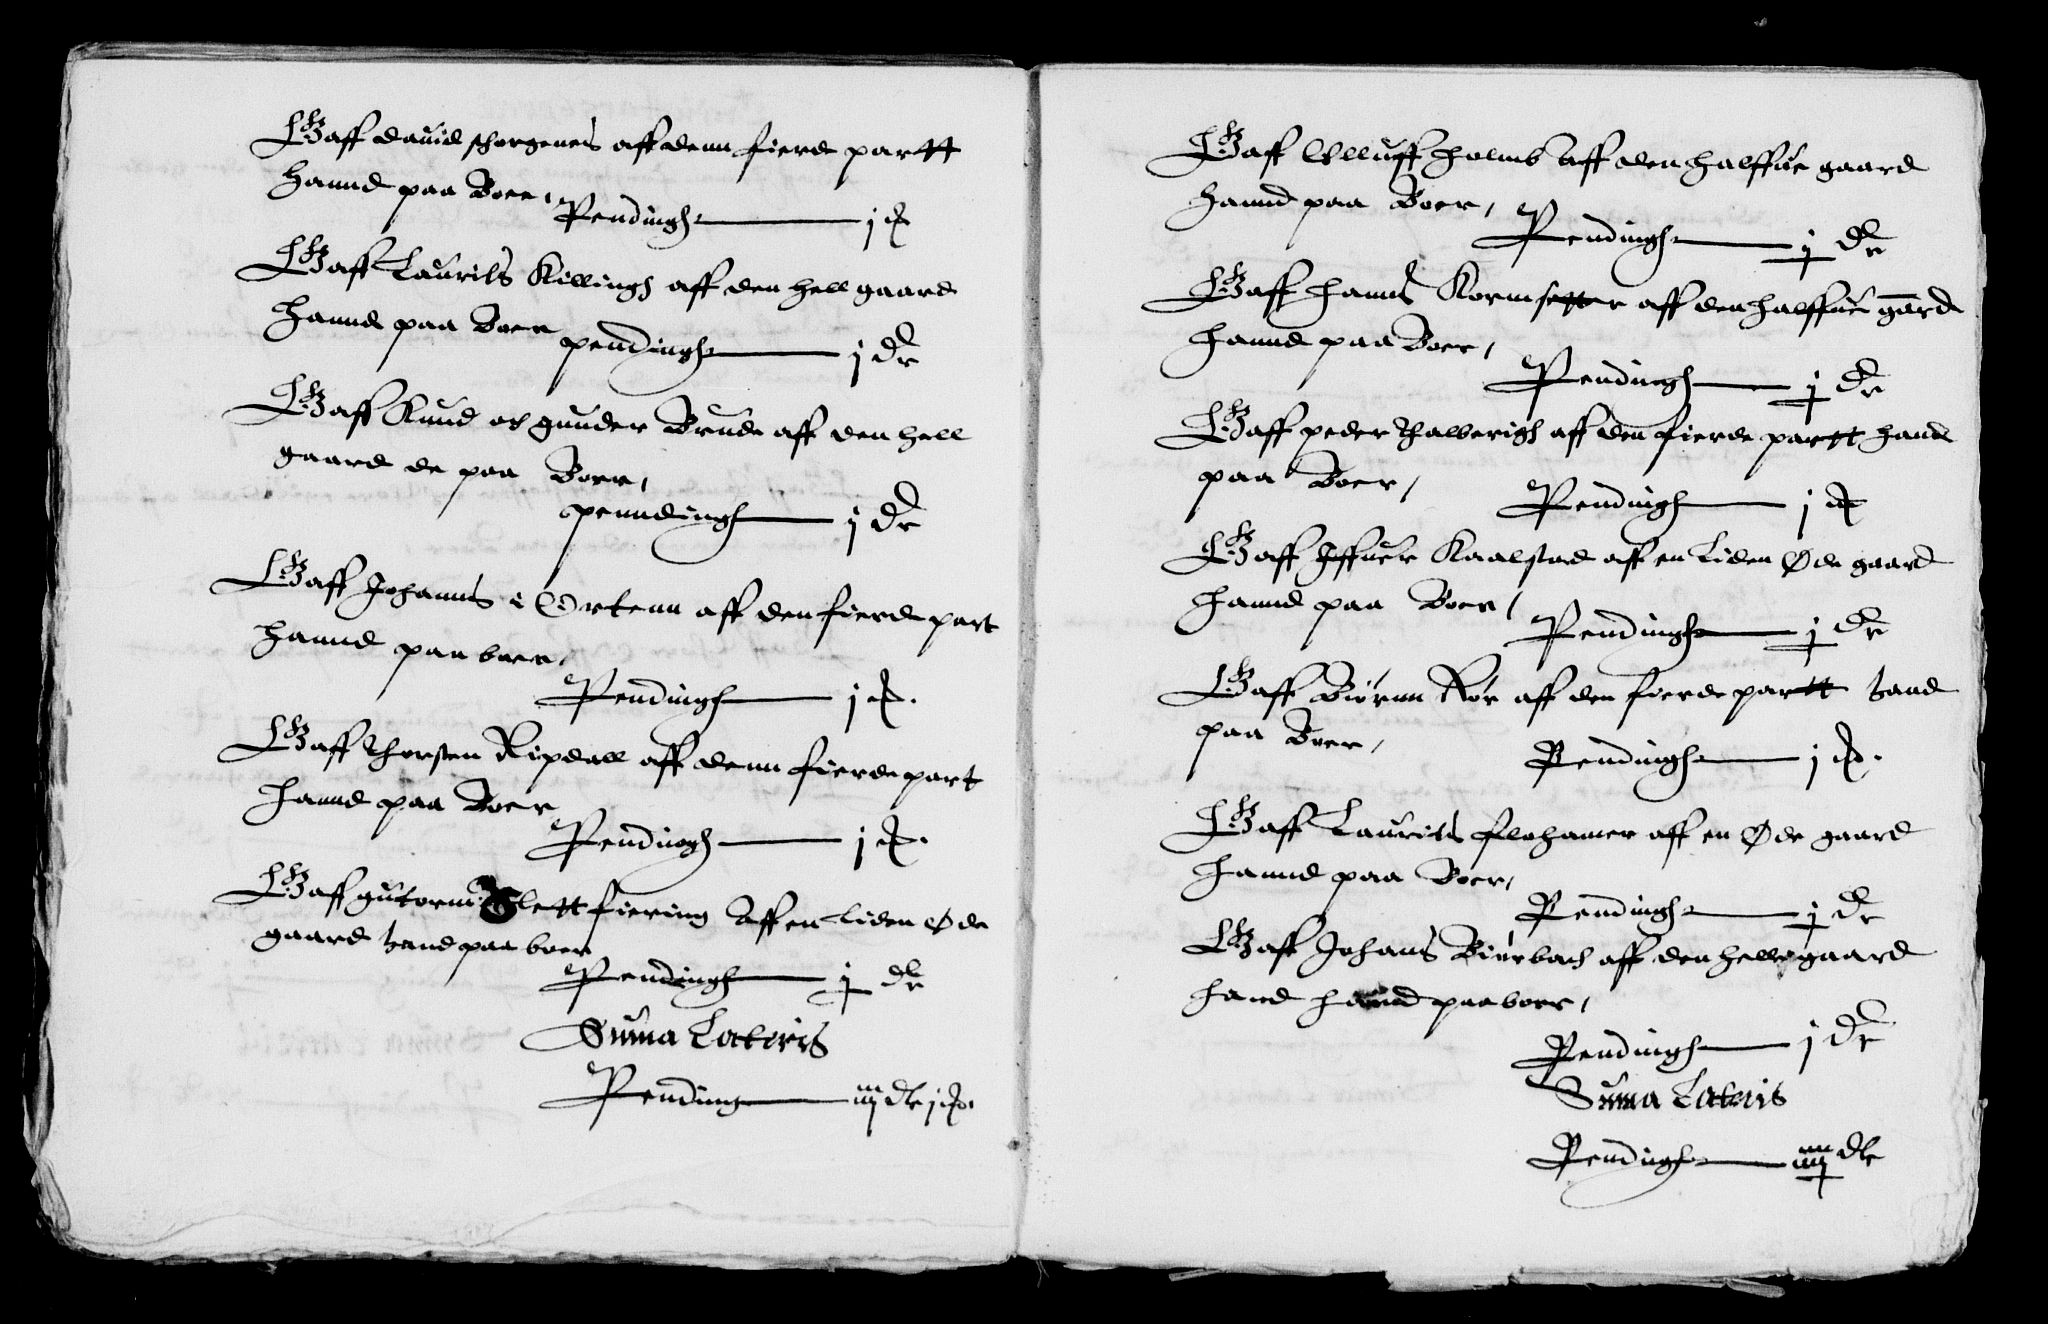 Gaff dauid schorgenes aff denn fierde partt
hannd paa Boer,
Pendingh j
Gaff Laurits Killingh aff den hell gaard
hannd paa Boer
pendingh j dr
Gaff Knud oc gunder Brude aff den hell
gaard de paa Boer,
penndingh j dr
Gaff Johanns i Ortenn aff den fierde part
hannd paa boer,
Pendingh j
Gaff Thorsten Ripdall aff denn fierde part
hannd paa Boer
Pendingh j
Gaff gutorm Slettfiering Aff en liden øde
gaard hand paa boer
Pendingh j dlr
Suma Lateris
Pending iiij dlr j
Gaff Olluff holms Aff den halffue gaard
hannd paa Boer,
Pendingh j dr
Gaff hanns Kormsetter aff den halffue gard
hannd paa Boer,
Pendingh j dr
Gaff peder Thalberigh aff den fierde partt hand
paa Boer,
Pendingh j
Gaff Iffuer Kaalstad aff en liden øde gaard
hannd paa Boer,
Pendingh j dr
Gaff Biørnn Rør aff den fierde partt hand
paa Boer,
Pendingh j
Gaff Laurits flohamer aff en øde gaard
hannd paa Boer,
Pendingh j dr
Gaff Johans Biurbach aff den helle gaard
hand hannd paa boer,
Pendingh j dr
Suma Lateris
Pendingh dlr